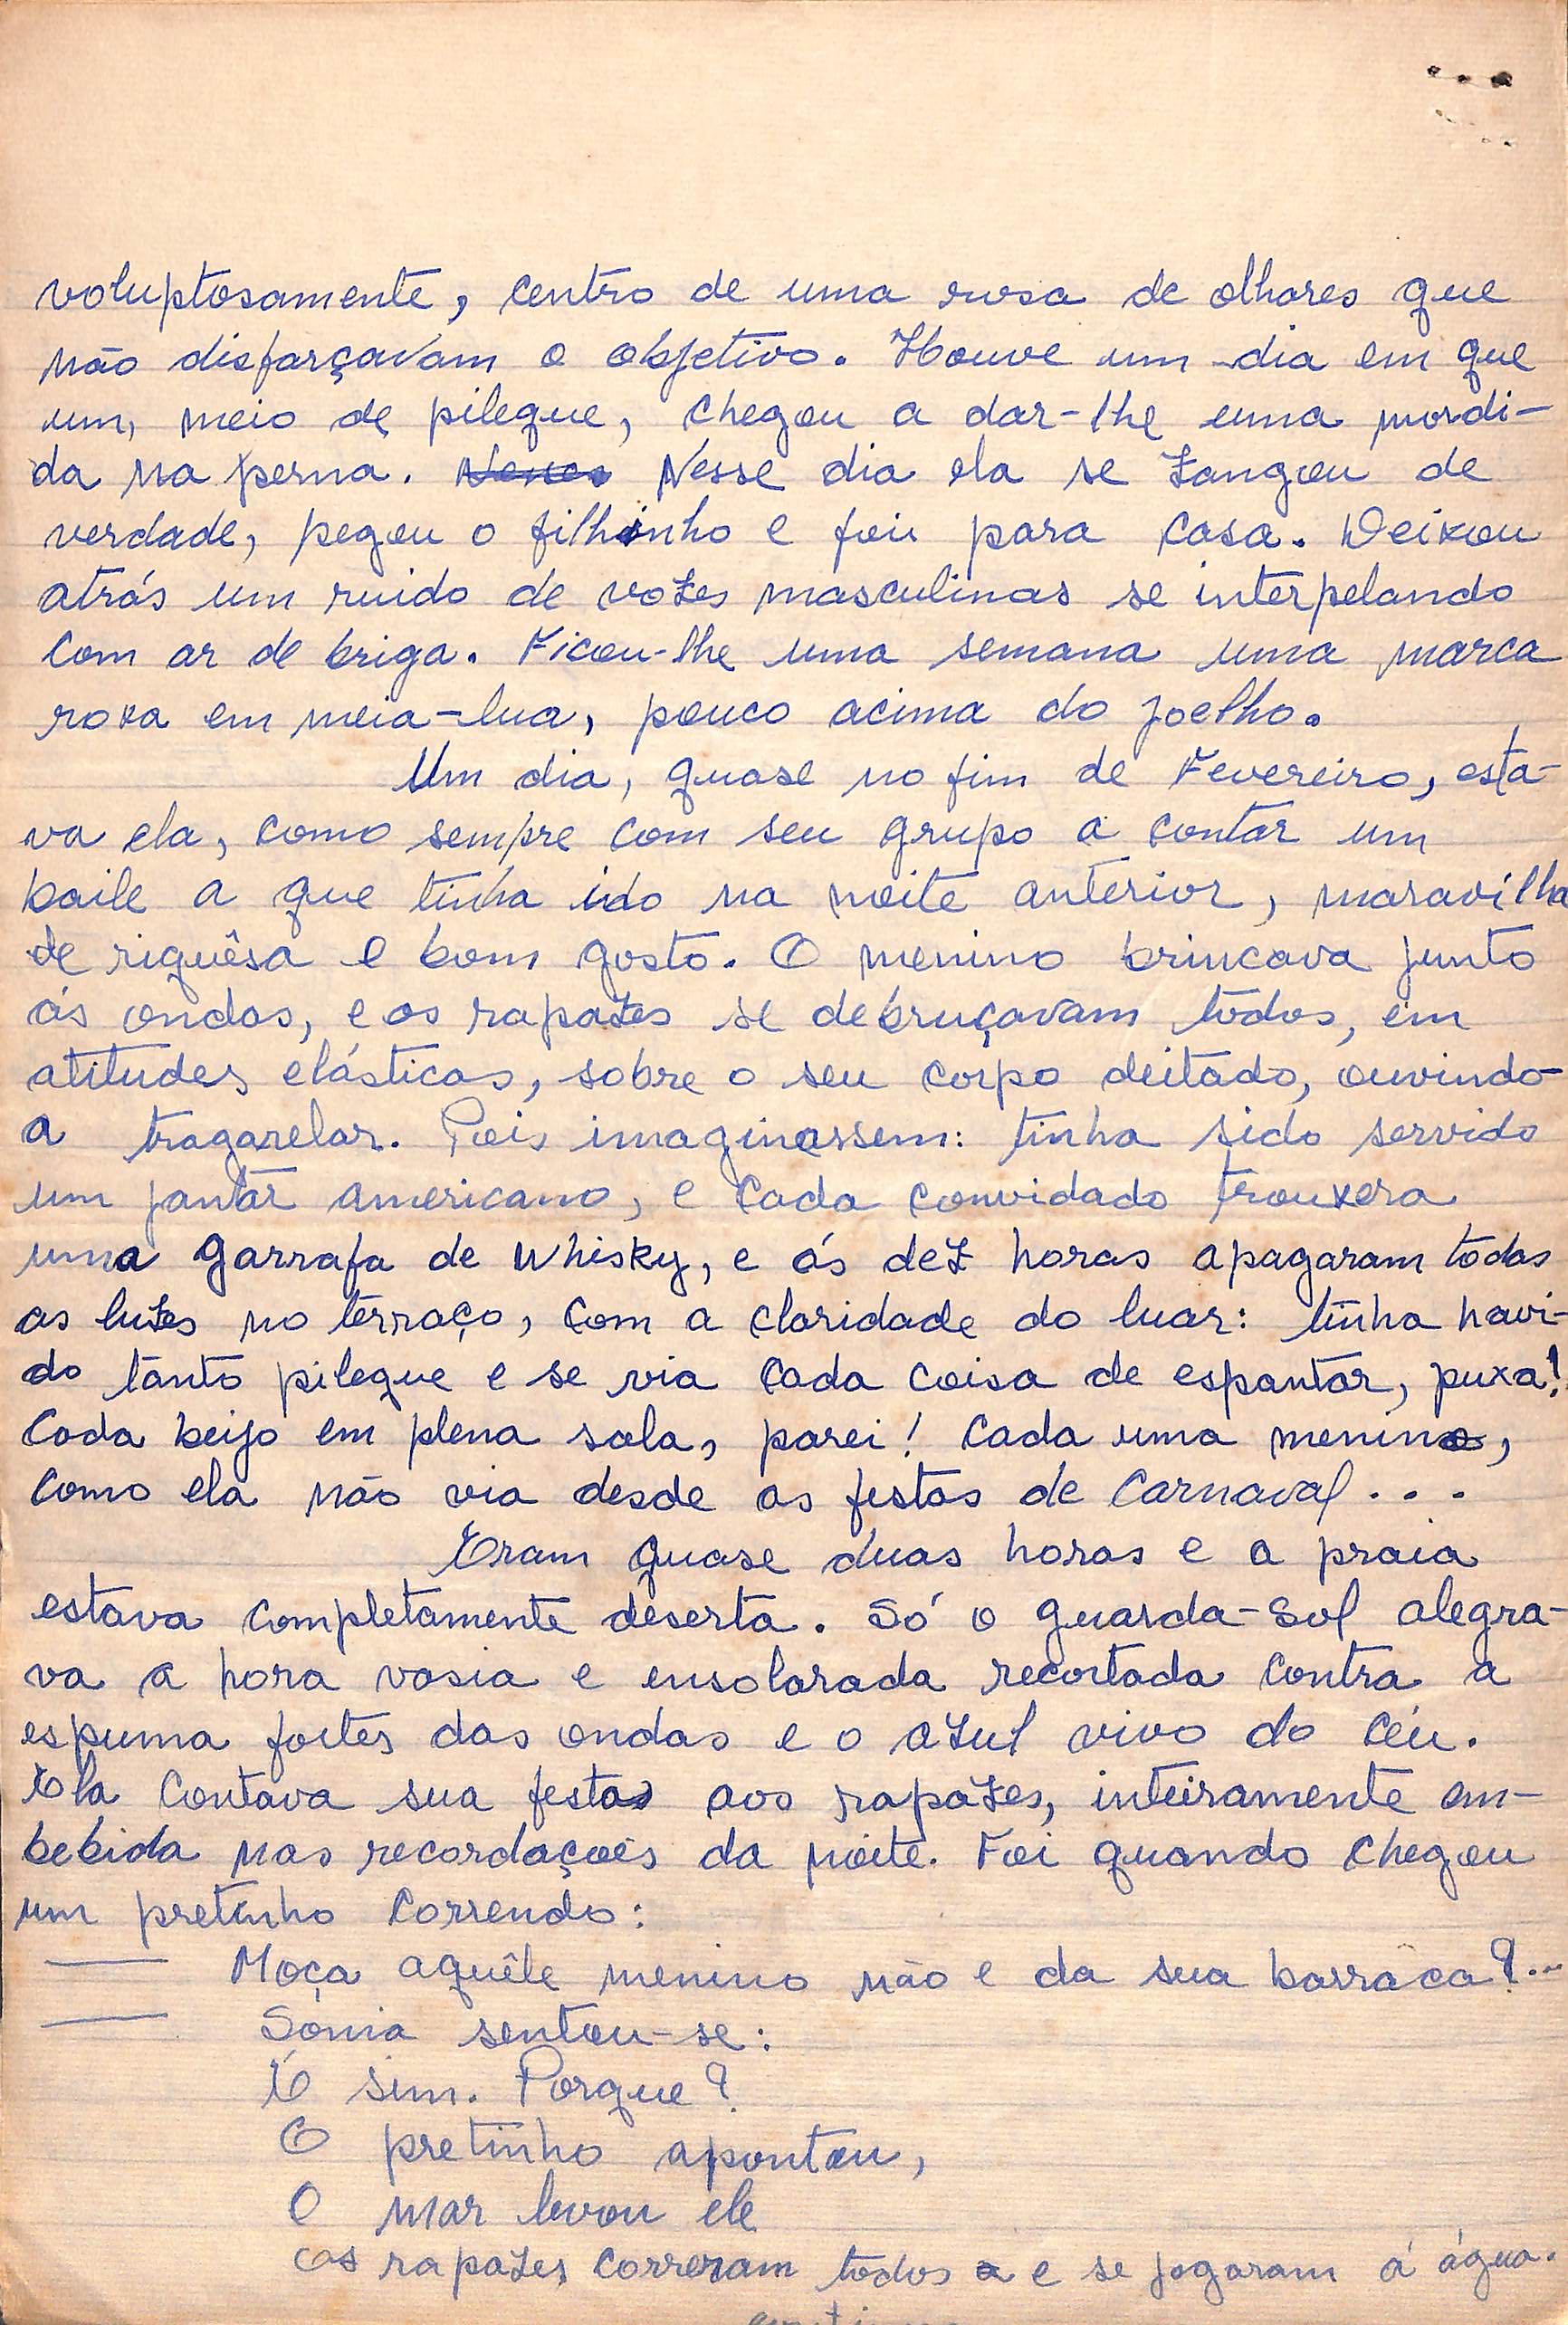 voluptosamente, centro de uma rosa de olhares que
não disfarçavam o objetivo. Houve um dia em que
um, meio de pileque, chegou a dar-lhe uma mordi-
da na perna. Nesse dia ela se zangou de
verdade, pegou o filhinho e foi para casa. Deixou
atrás um ruido de vozes masculinas se interpelando
com ar de briga. Ficou-lhe uma semana uma marca
roxa em meia-lua, pouco acima do joelho.
Um dia, quase no fim de Fevereiro, esta-
va ela, como sempre com seu grupo a contar um
baile a que tinha ido na noite anterior, maravilha
de riquêsa e bom gosto. O menino brincava junto
ás ondas, e os rapazes se debruçavam todos, em
atitudes elásticas, sobre o seu corpo deitado, ouvindo-
a tragarelar. Pois imaginassem: tinha sido servido
um jantar americano, e cada convidado trouxera
uma garrafa de Whisky, e ás dez horas apagaram todas
as luzes no terraço, com a claridade do luar: tinha havi-
do tanto pileque e se via cada coisa de espantar, puxa!
Cada beijo em plena sala, parei! Cada uma menina,
como ela não via desde as festas de Carnaval...
Eram quase duas horas e a praia
estava completamente deserta. Só o guarda-sol alegra-
va a hora vasia e ensolarada recortada contra a
espuma fortes das ondas e o azul vivo do céu.
Ela contava sua festa aos rapazes, inteiramente em-
bebida nas recordações da noite. Foi quando chegou
um pretinho correndo:
— Moça aquêle menino não e da sua barraca?...
— Sônia sentou-se:
É sim. Porque?
O pretinho apontou,
O mar levou ele
os rapazes correram todos e se jogaram á água.